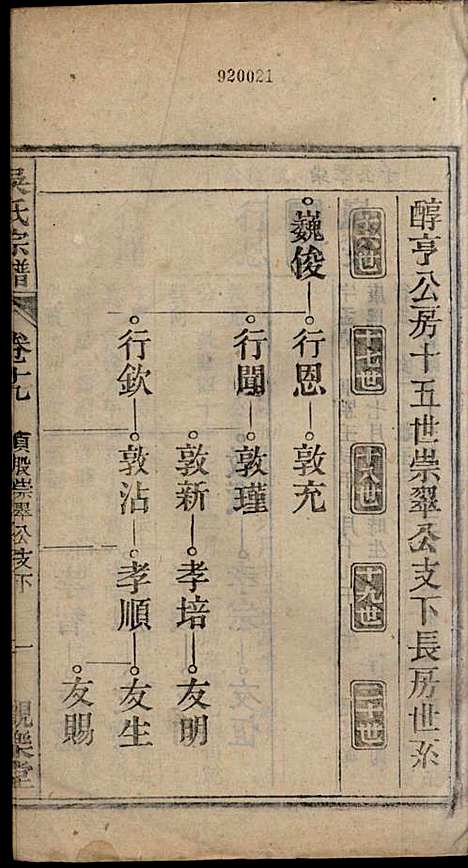 920021
醇亨公房十五世崇翠公支下長房世系
十六世
十七世
十八世
十九世
二十世
巍俊
行恩
敦充
行聞
敦瑾
敦新
孝培
友明
行欽
敦沾
孝順
友生
友賜
吳氏宗譜
卷十九
貞股崇翠公支下
一
觀樂堂